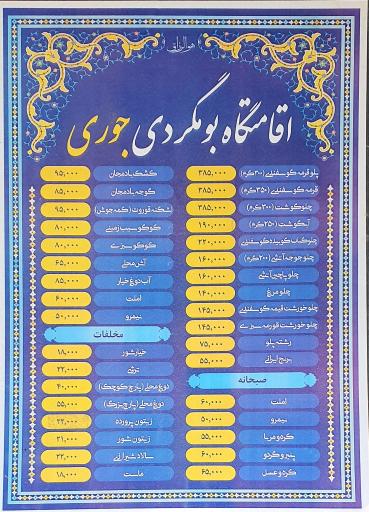 هوالرزاق
اقامتگاه بومگردی جوری
پلو قرمه گوسفندی (۳۰۰گرم) ۳۸۵,۰۰۰
قرمه گوسفندی (۲۵۰گرم) ۳۸۵,۰۰۰
چلو گوشت (۳۰۰گرم) ۳۸۵,۰۰۰
آبگوشت (۲۵۰گرم) ۱۹۰,۰۰۰
چلو کباب کوبیده گوسفندی ۲۲۰,۰۰۰
چلو جوجه آتشی (۲۰۰گرم) ۱۶۰,۰۰۰
چلو پاچین آتشی ۱۶۰,۰۰۰
چلو مرغ ۱۴۰,۰۰۰
چلو خورشت قیمه گوسفندی ۱۴۵,۰۰۰
چلو خورشت قورمه سبزی ۱۴۵,۰۰۰
رشته پلو ۷۵,۰۰۰
برنج ایرانی ۵۵,۰۰۰
صبحانه
املت ۶۰,۰۰۰
نیمرو ۵۰,۰۰۰
کره و مربا ۵۵,۰۰۰
پنیر و گردو ۶۰,۰۰۰
کره و عسل ۶۵,۰۰۰
کشک بادمجان ۹۵,۰۰۰
گوجه بادمجان ۸۵,۰۰۰
اشکنه قوروت (کمه جوش) ۹۵,۰۰۰
کوکو سیب زمینی ۸۰,۰۰۰
کوکو سبزی ۸۰,۰۰۰
آش محلی ۶۵,۰۰۰
آب دوغ خیار ۸۵,۰۰۰
املت ۶۰,۰۰۰
نیمرو ۵۰,۰۰۰
مخلفات
خیارشور ۱۸,۰۰۰
ترشی ۲۲,۰۰۰
دوغ محلی (پارچ کوچک) ۴۰,۰۰۰
دوغ محلی (پارچ بزرگ) ۵۵,۰۰۰
زیتون پرورده
زیتون شور ۲۱,۰۰۰
سالاد شیرازی ۲۲,۰۰۰
ماست ۱۸,۰۰۰